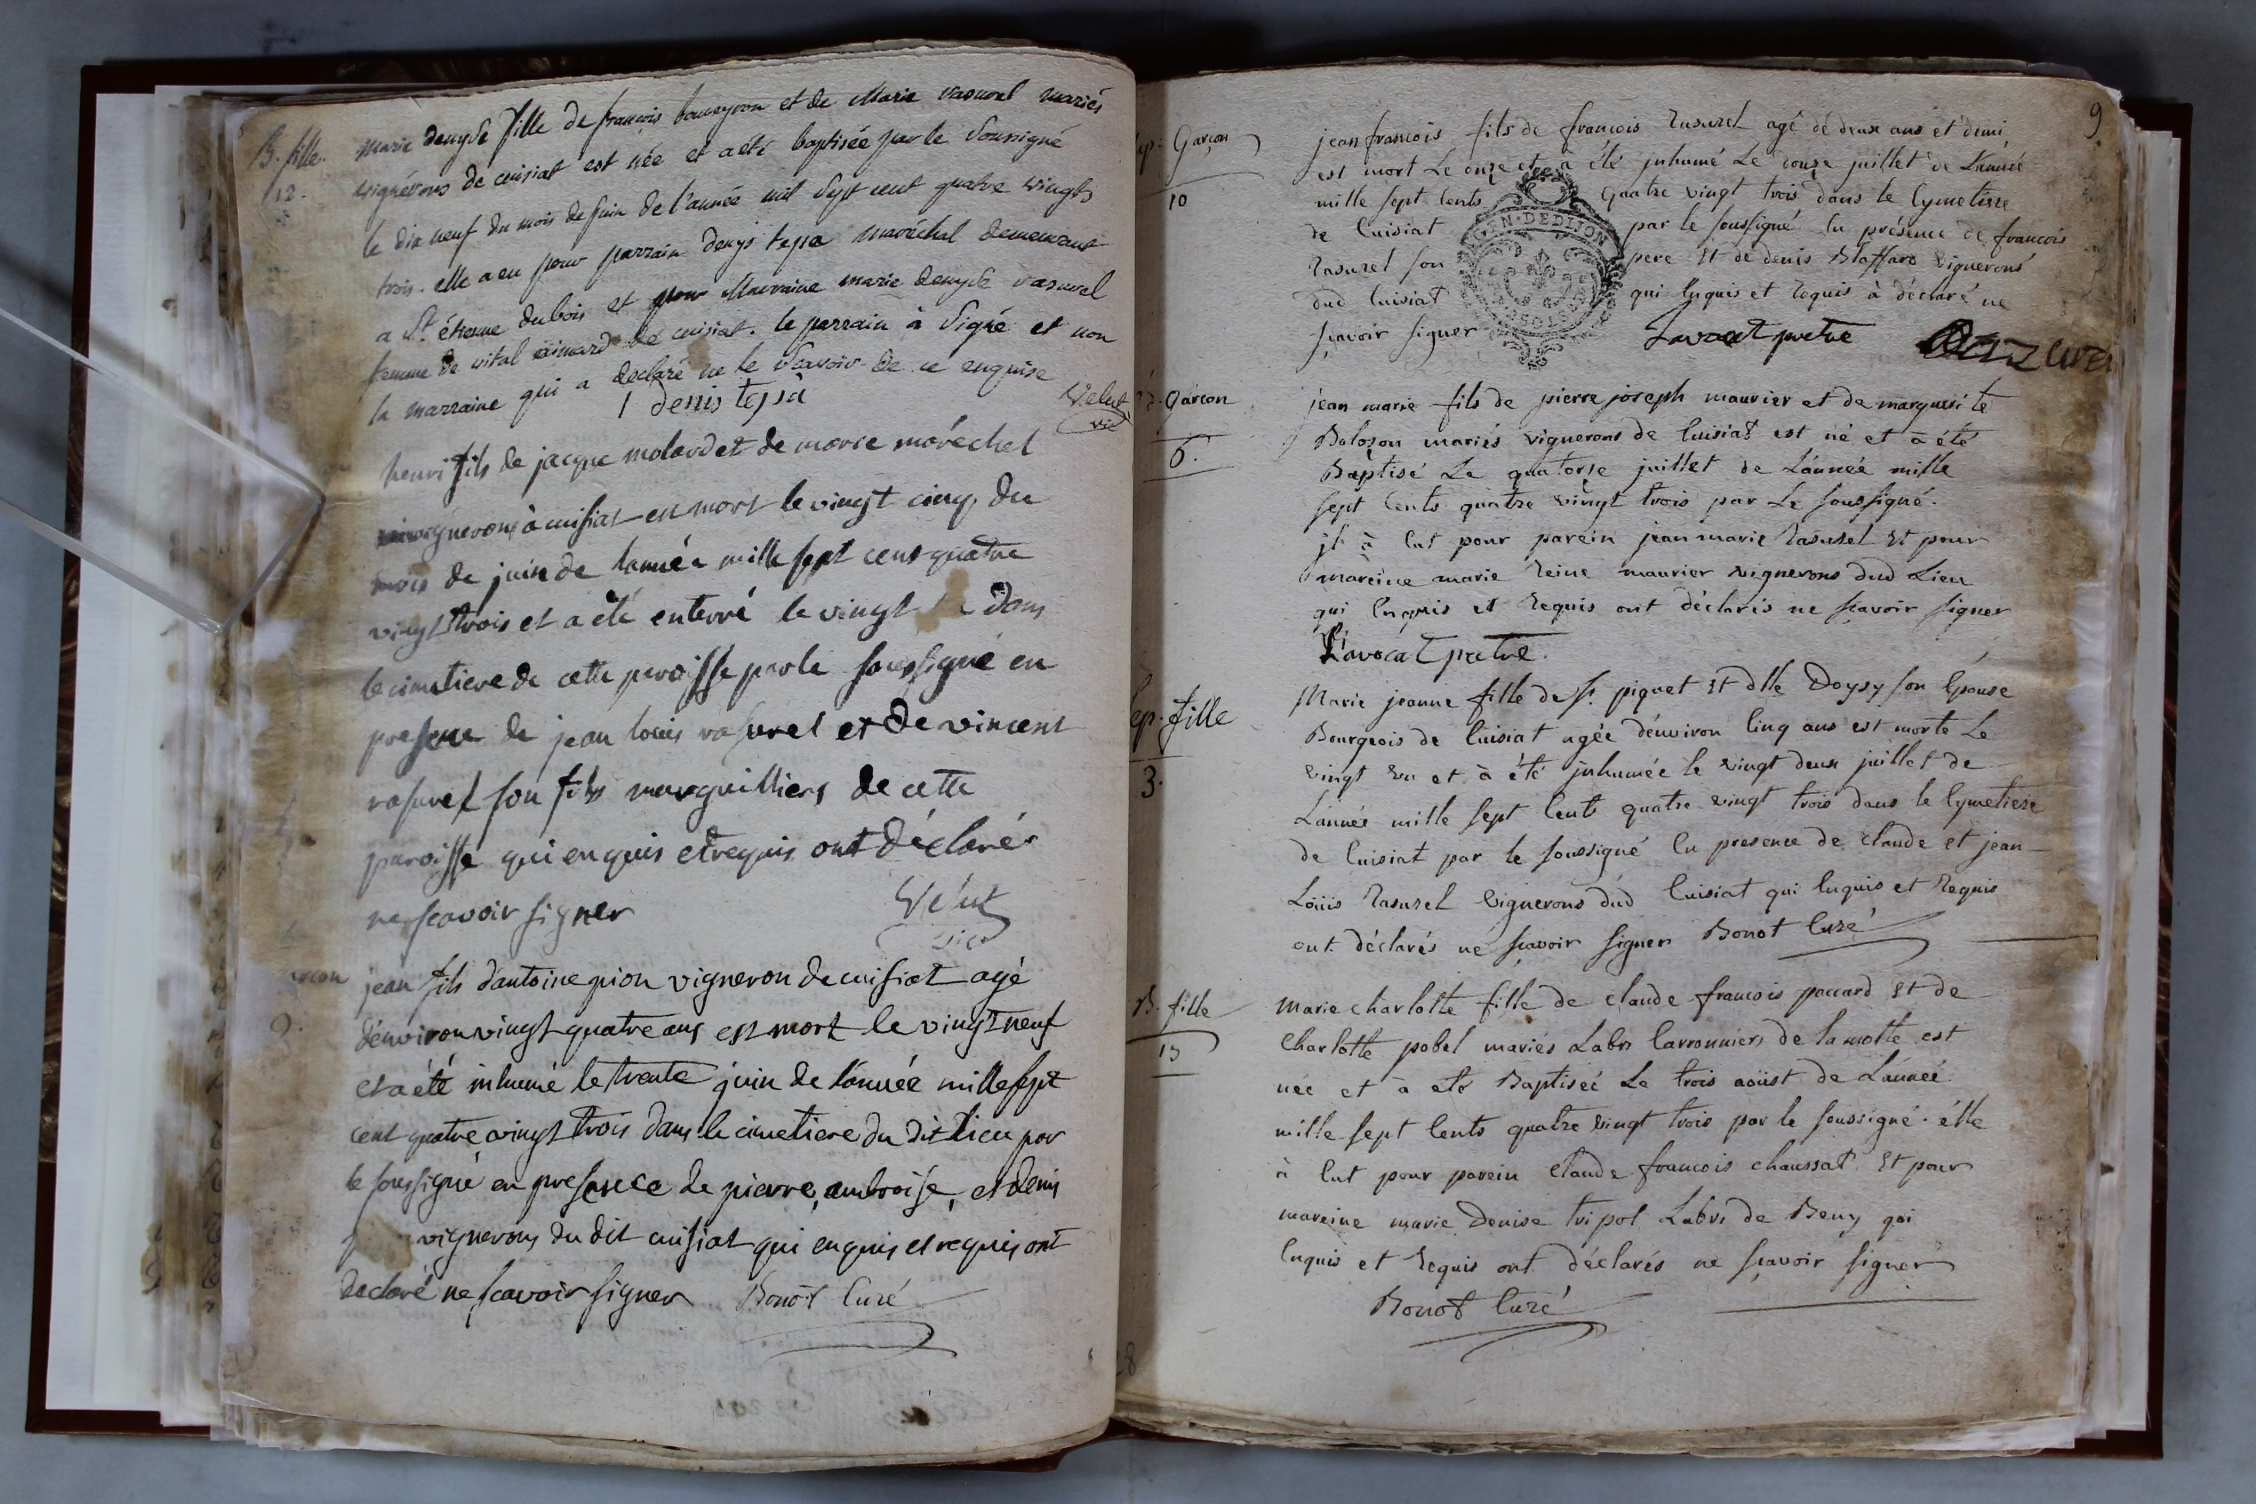 B. fille.
12.
marie denyse fille de françois bouveyron et de Marie rasurel mariés
vignérons de cuisiat est née et a été baptisée par le Soussigné
le dix neuf du mois de juin de l'année mil sept cent quatre vingts
trois. elle a eu pour parrain denys tepa maréchal demeurant
a St. étienne du bois et pour Marraine marie denyse rasurel
femme de vital de cuisiat. le parrain à signé et non
la marraine qui a declaré ne le sçavoir de ce enquise
denis Velut
vic
henri fils de jacque molard et de marie maréchel
vignerons à cuisiat est mort le vingt cinq du
mois de juin de lannée mille sept cens quatre
vingt trois et a été enterré le vingt dans
le cimetiere de cette paroisse par le soussigné en
presence de jean louis rasurel et de vincent
rasurel son fils marguilliers de cette
paroisse qui enquis et requis ont déclarés
ne scavoir signer Velut
vic
jean fils d'antoine pion vigneron de cuisiat agé
d'environ vingt quatre ans est mort le vingt neuf
9.
et a été inhumé le trente juin de l'année mille sept
cent quatre vingt trois dans le cimetiere du dit lieu par
le soussigné en presence de pierre, ambroise, et denis
vignerons du dit cuisiat qui enquis et requis ont
declaré ne scavoir signer Bonot Curé
9.
Garçon
10
jean francois fils de francois Rasurel agé de deux ans et demi
est mort Le onze et a été inhumé Le douze juillet de L'année
mille sept Cents quatre vingt trois dans le Cymetiere
de Cuisiat par le soussigné En présence de francois
Rasurel son pere Et de denis Blaffard vignerons
dud Cuisiat qui Enquis et Requis à déclaré ne
sçavoir signer Lavocat pretre
Garcon
6.
jean marie fils de pierre joseph maurier et de marguerite
Boloson mariés vignerons de Cuisiat est né et à été
Baptisé Le quatorze juillet de L'année mille
sept Cents quatre vingt trois par Le soussigné.
jl à Eut pour parein jean marie Rasurel Et pour
mareine marie Reine maurier vignerons dud Lieu
qui Enquis et Requis ont déclarés ne sçavoir signer
L'avocat pretre.
fille
3.
Marie jeanne fille de sr. piquet Et dlle Doysy son Epouse
Bourgeois de Cuisiat agée d'environ Cinq ans est morte Le
vingt un et à été inhumée le vingt deux juillet de
L'année mille sept Cents quatre vingt trois dans le Cymetiere
de Cuisiat par le soussigné En presence de claude et jean
Loüis Rasurel vignerons dud Cuisiat qui Enquis et Requis
ont déclarés ne sçavoir signer Bonot Curé
B. fille
13
marie charlotte fille de claude francois paccard Et de
Charlotte pobel mariés Labrs Carronniers de la motte est
née et à été Baptiseé Le trois aoüst de L'année
mille sept Cents quatre vingt trois par le soussigné. élle
à Eut pour parein claude francois chaussat Et pour
mareine marie Denise tripot Labrs de Beny qui
Enquis et Requis ont déclarés ne sçavoir signer
Bonot Curé